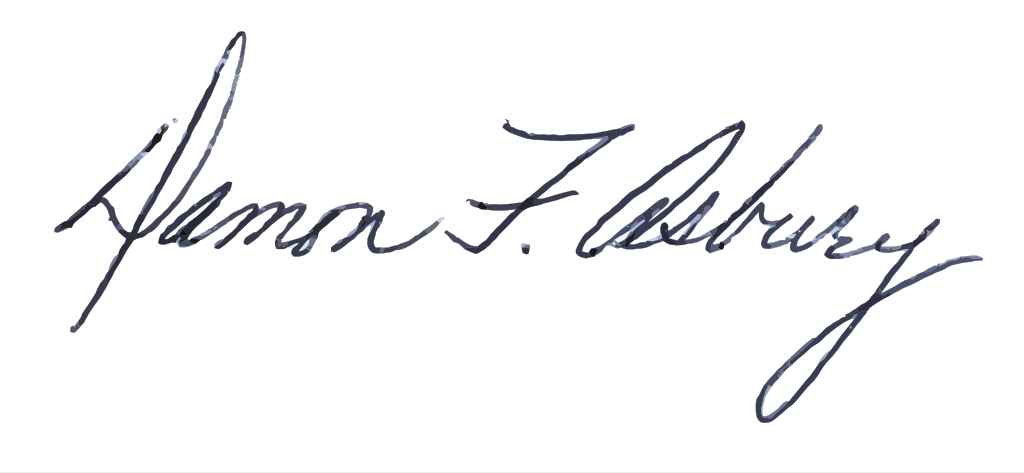 Damon F. Asbury